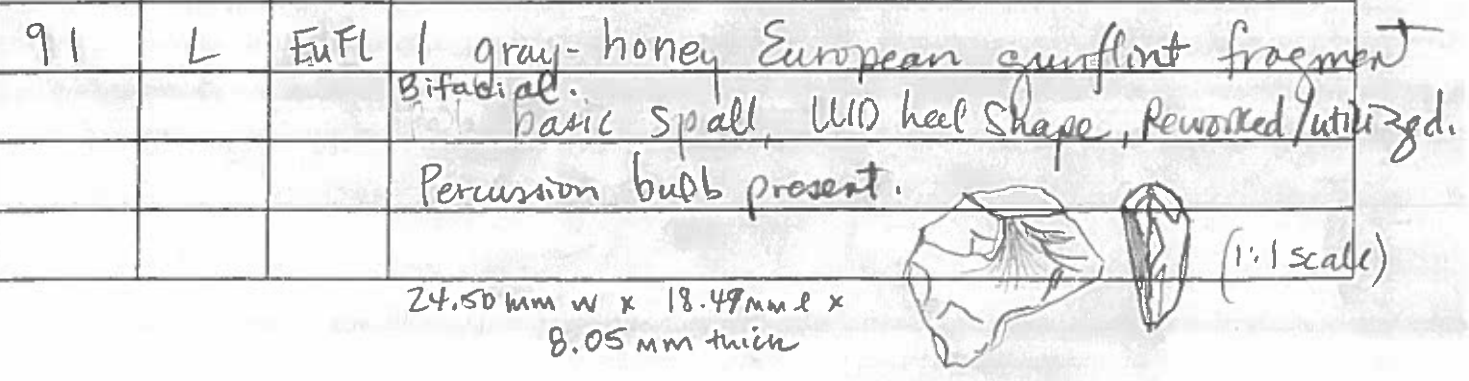 91 L EuFl 1 gray-honey European gunflint fragment
Bifacial.
basic spall, UID heel shape, Reworked/utilized.
Percussion bulb present.
(1:1 scale)
24.50 mm w x 18.49 mm l x
8.05 mm thick